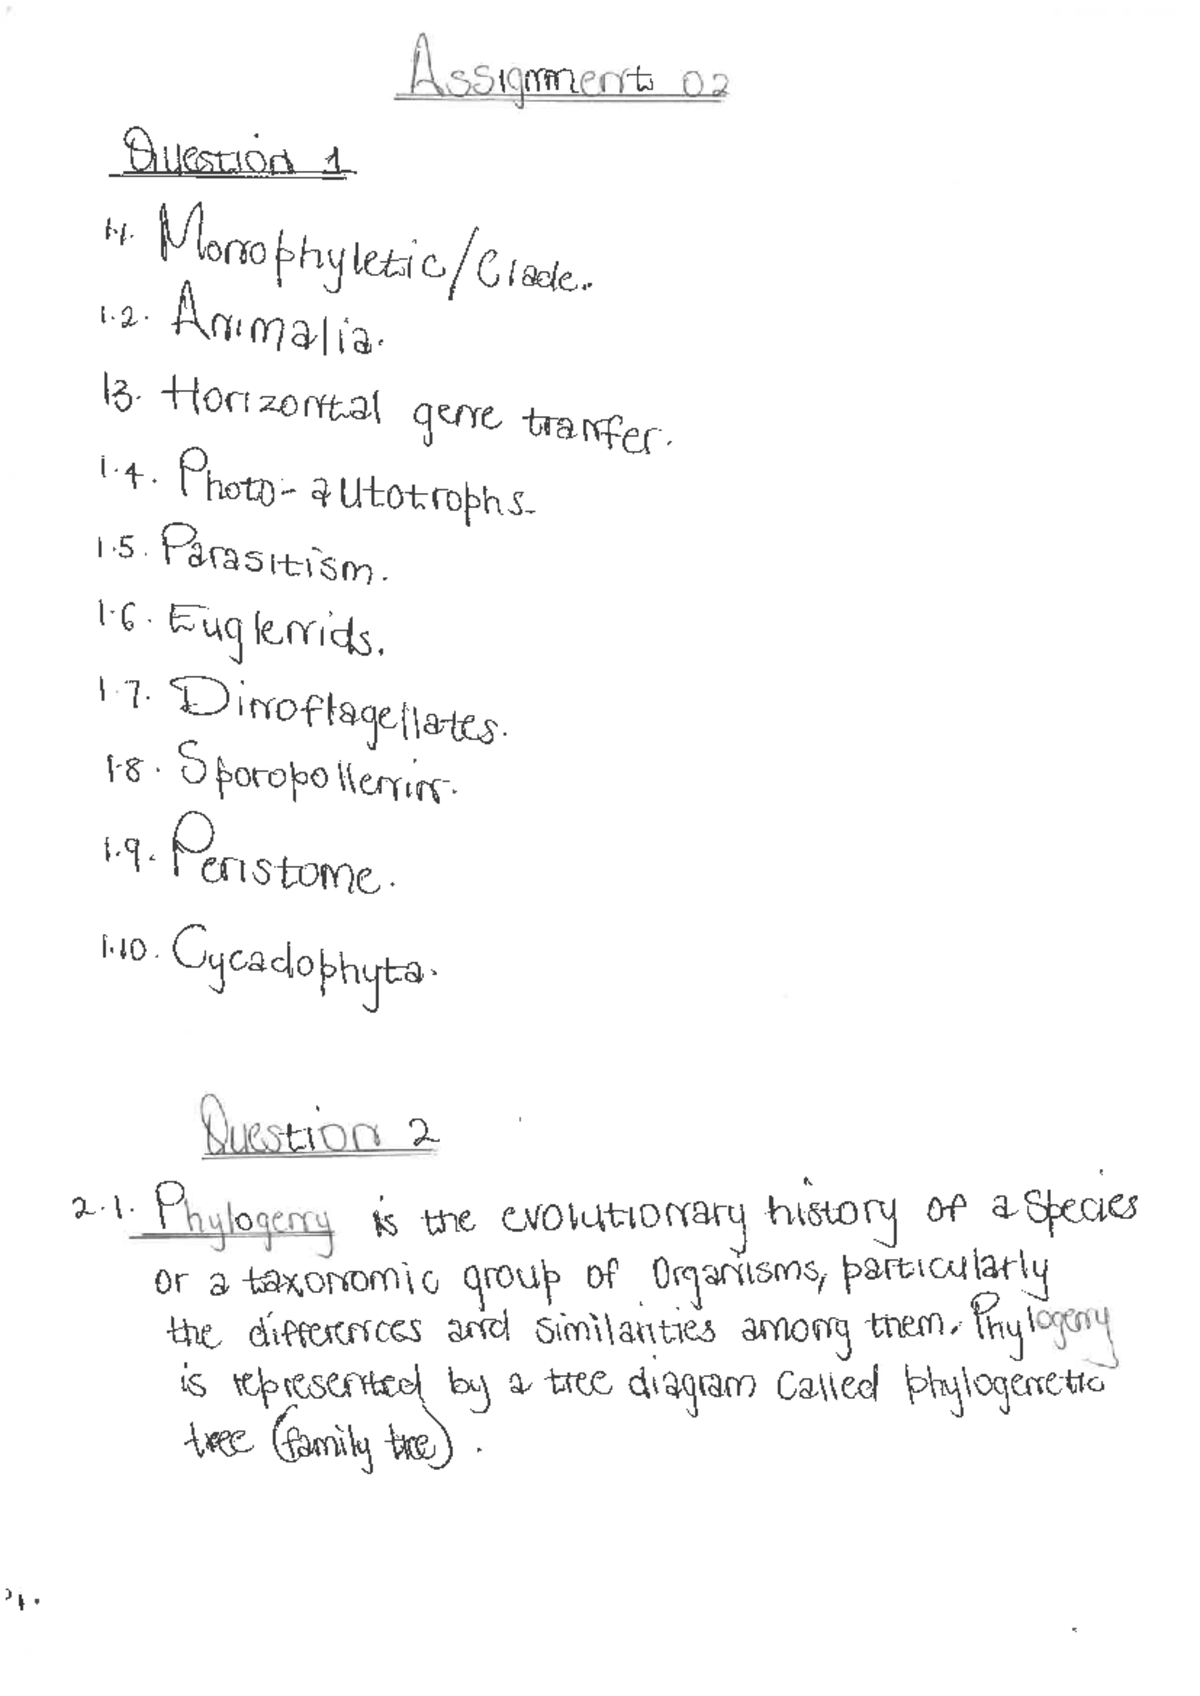 Assignment 02
Question 1
1.1. Monophyletic/Clade.
1.2. Animalia.
1.3. Horizontal gene tranfer.
1.4. Photo-autotrophs.
1.5. Parasitism.
1.6. Euglenids.
1.7. Dinoflagellates.
1.8. Sporopollenin.
1.9. Peristome.
1.10. Cycadophyta.
Question 2
2.1. Phylogeny is the evolutionary history of a species
or a taxonomic group of Organisms, particularly
the differences and similarities among them. Phylogeny
is represented by a tree diagram called phylogenetic
tree (family tree).